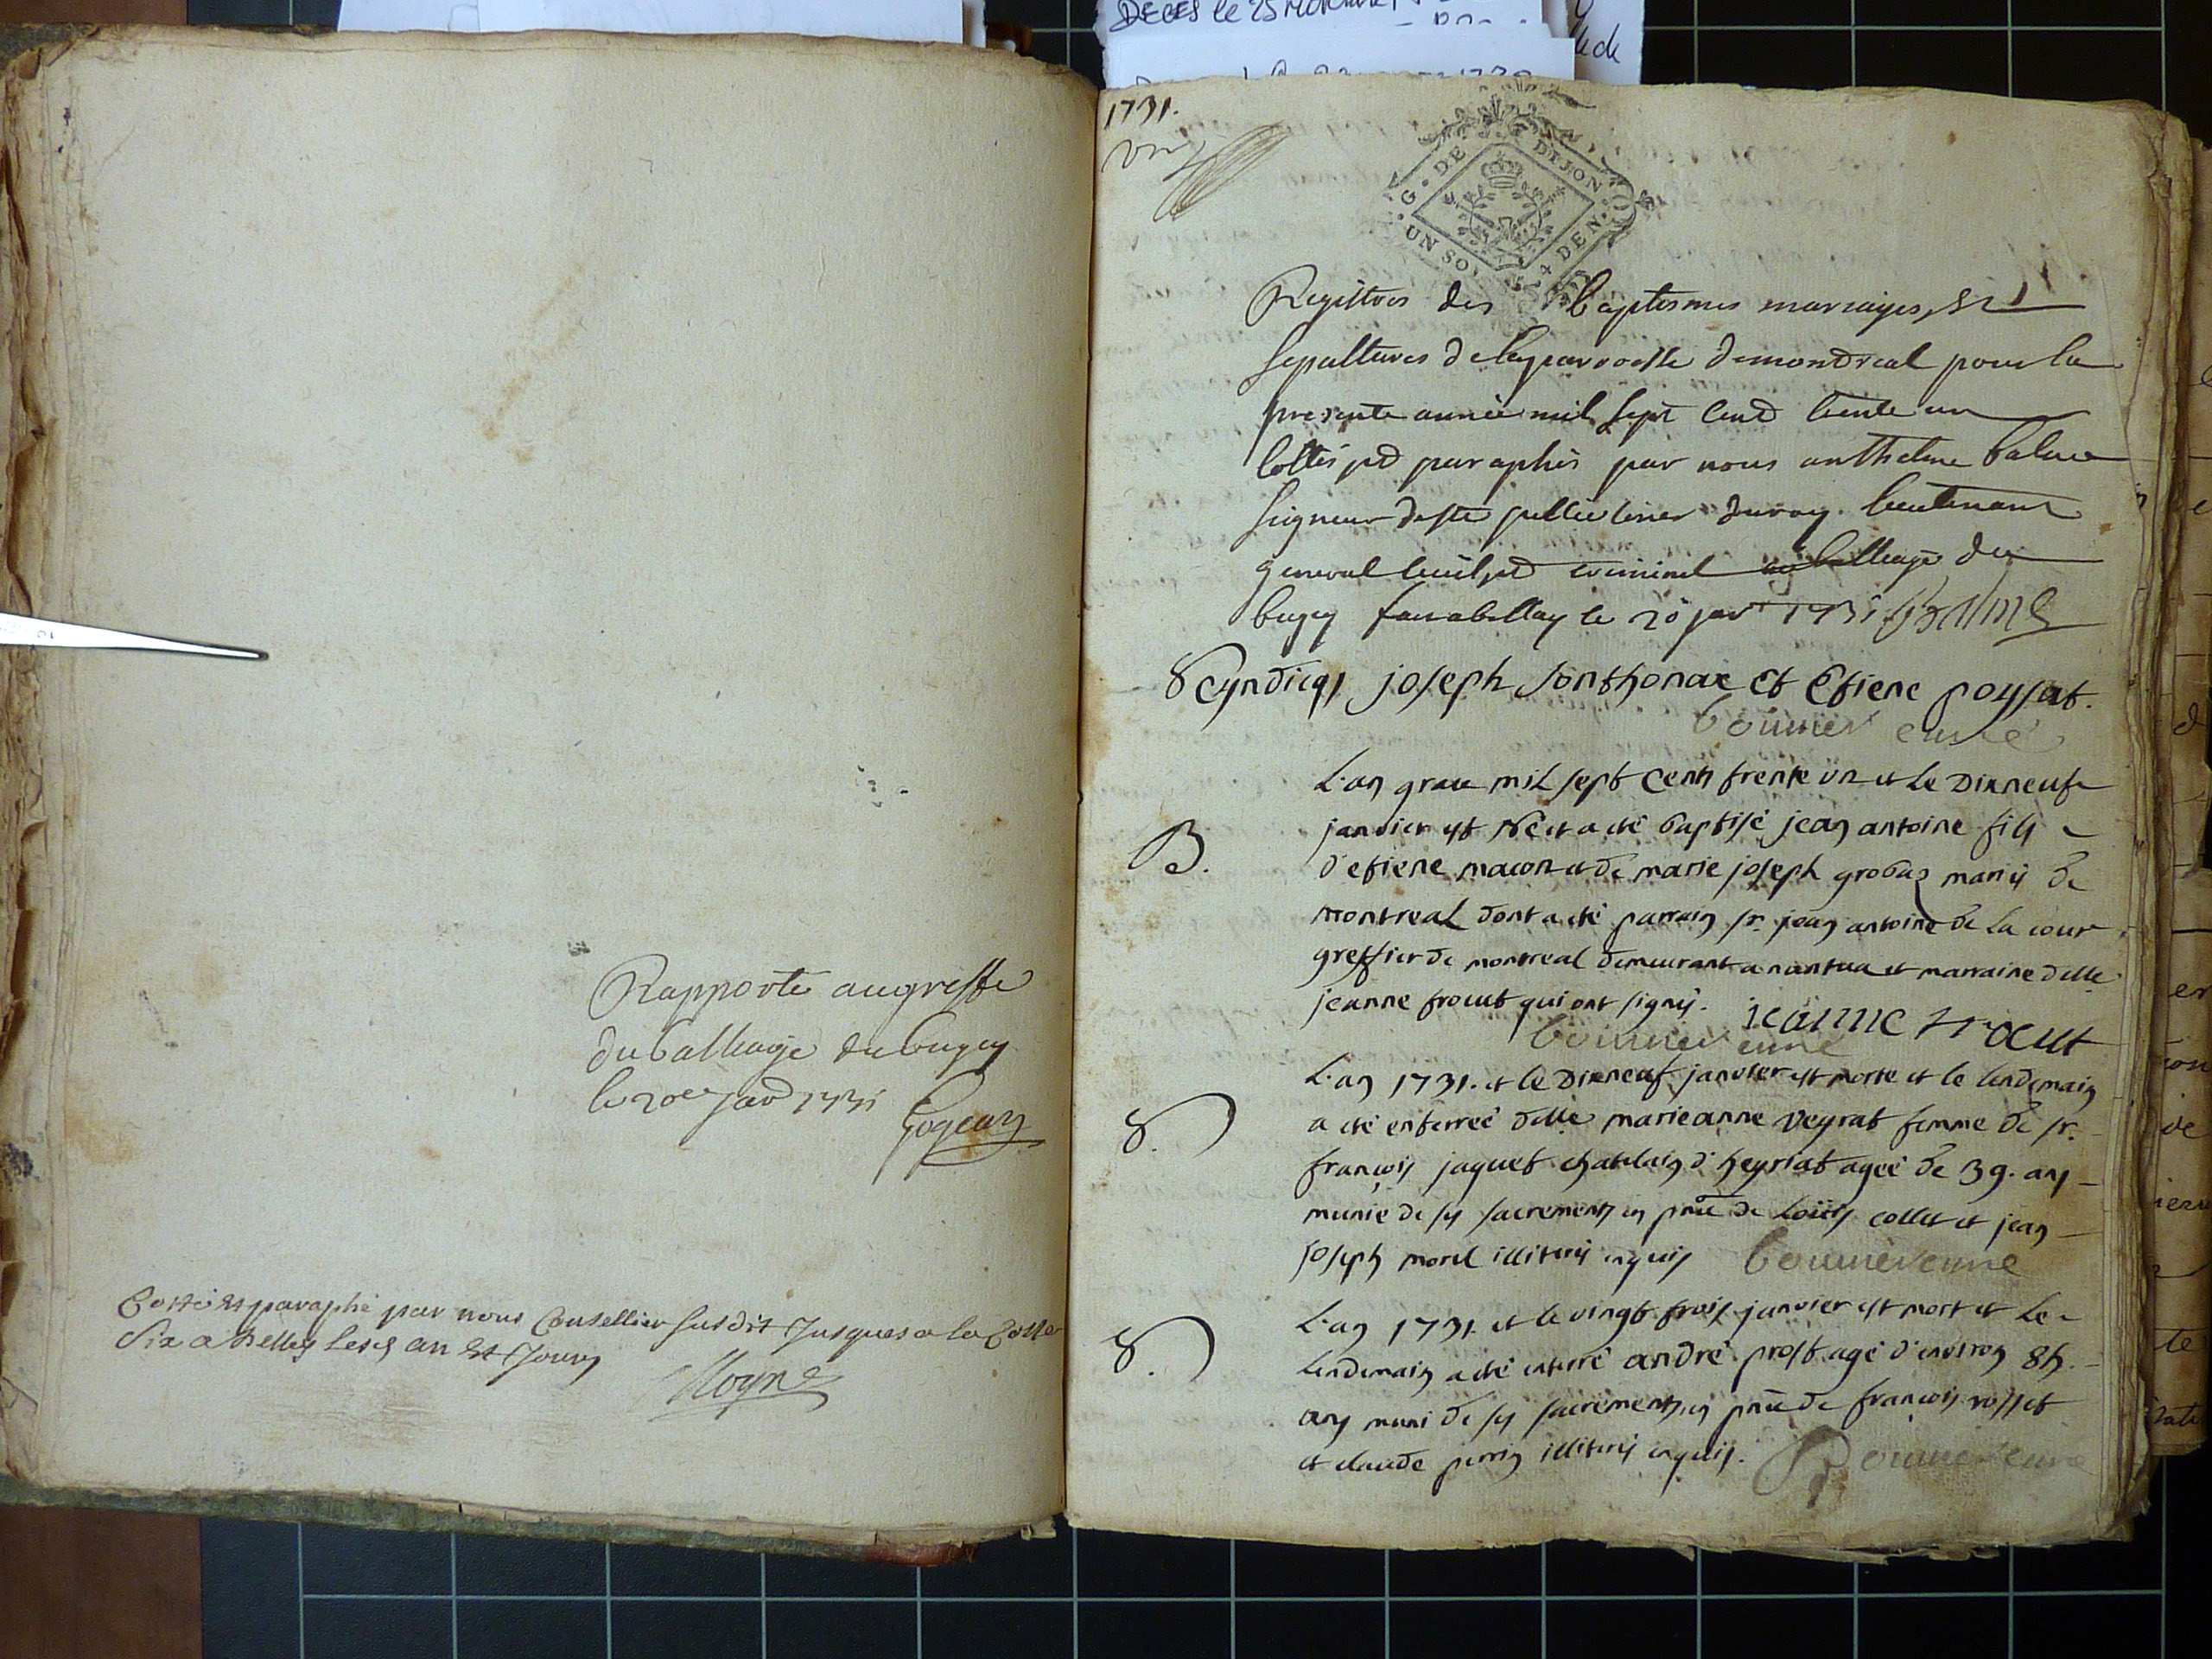 Rapporté au greffe
du balliage du bugey
le 20e janv 1731
Cotté et paraphé par nous Conseillier susdit Jusques a la Cotte
Six a Belley lesd an et Jour
Moyne
DECES le 25
1731.
G. DE DIJON
UN SOL 4 DEN.
Registres des baptesmes mariages, et
sepultures de la parroisse de montreal pour la
presente année mil sept cent trente un
cottés et paraphés par nous anthelme balme
seigneur de ste jullie conser du roy lieutenant
general civil et criminel au balliage du
bugey fait a bellay le 20 janv 1731 Balme
Scyndicqs joseph sonthonax et Etiene poysat.
bonne curé
L'an grace mil sept cents trente un et le Dixneuf
janvier est né et a eté baptisé jean antoine fils
B.
d'etiene macon et de marie joseph grobas mariés de
montreal dont a eté parrain sr. jean antoine de la cour
greffier de montreal demeurant a nantua et marraine delle
jeanne trocut qui ont signés.
jeanne trocut
L'an 1731. et le Dixneuf janvier est morte et le lendemain
S.
a eté enterreé delle marieanne veyrat femme de sr.
françois jaquet chatelain d'heyriat ageé de 39. ans
munie de ses sacrements en pnce de Loüis collet et jean
joseph morel illiterés enquis
L'an 1731. et le vingt trois janvier est mort et le
S.
lendemain a eté enterré andré prost agé d'environ 85.
ans muni de ses sacrements, en pnce de françois rosset
et claude perrin illiterés enquis.